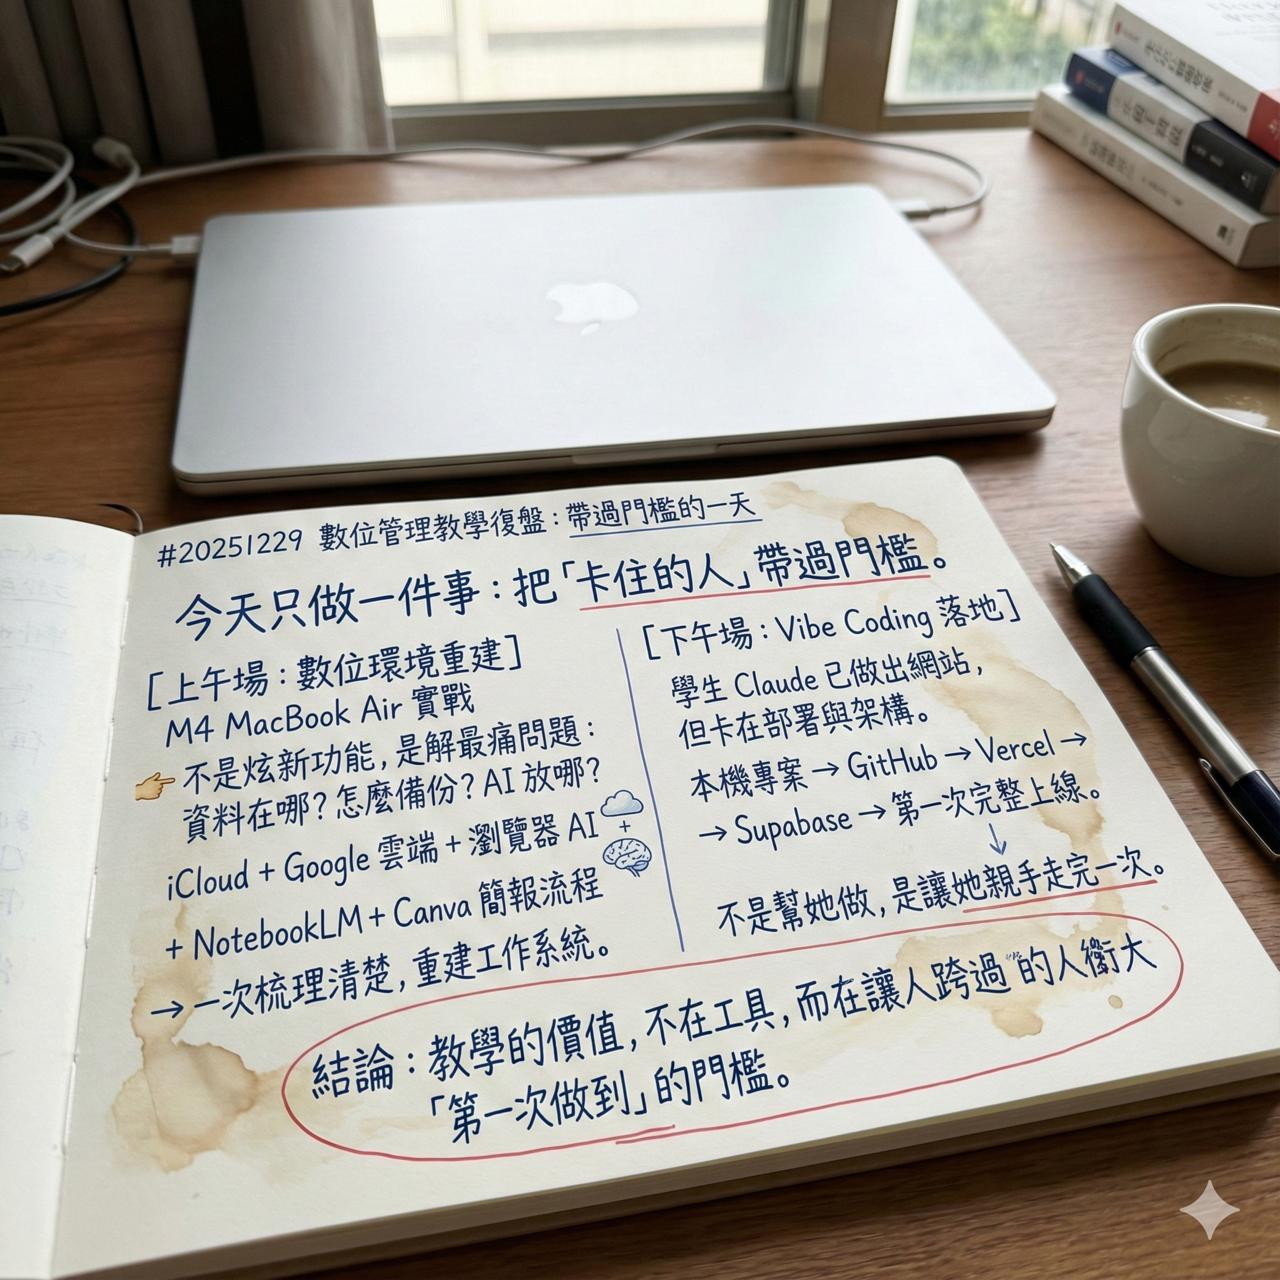 #20251229 數位管理教學復盤：帶過門檻的一天
今天只做一件事：把「卡住的人」帶過門檻。
[上午場：數位環境重建]
M4 MacBook Air 實戰
👉 不是炫新功能，是解最痛問題：
資料在哪？怎麼備份？AI 放哪？
iCloud + Google 雲端 + 瀏覽器 AI
+
+ NotebookLM + Canva 簡報流程
→ 一次梳理清楚，重建工作系統。
[下午場：Vibe Coding 落地]
學生 Claude 已做出網站，
但卡在部署與架構。
本機專案 → GitHub → Vercel →
→ Supabase → 第一次完整上線。
↓
不是幫她做，是讓她親手走完一次。
結論：教學的價值，不在工具，而在讓人跨過 的人 大
「第一次做到」的門檻。